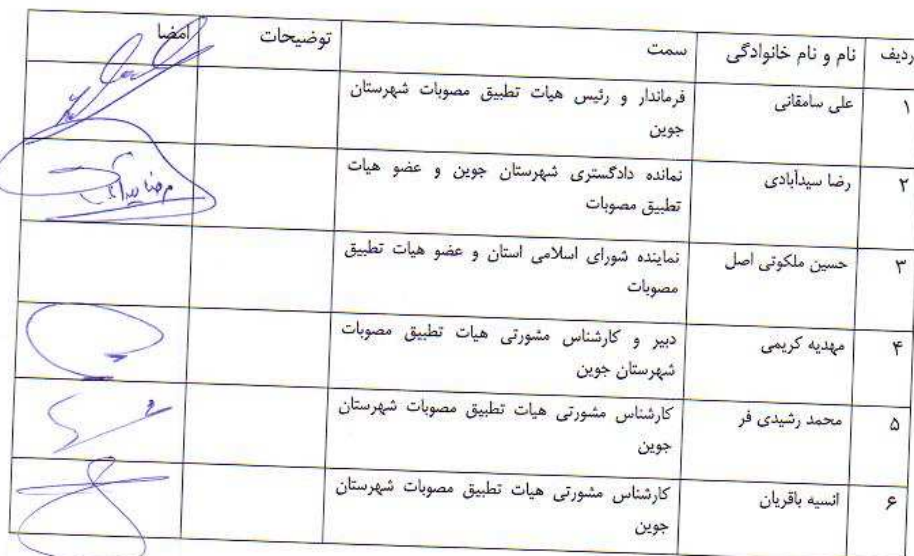 ردیف نام و نام خانوادگی سمت توضیحات امضا
۱ علی سامقانی فرماندار و رئیس هیات تطبیق مصوبات شهرستان
جوین
۲ رضا سیدآبادی نمانده دادگستری شهرستان جوین و عضو هیات
تطبیق مصوبات
۳ حسین ملکوتی اصل نماینده شورای اسلامی استان و عضو هیات تطبیق
مصوبات
۴ مهدیه کریمی دبیر و کارشناس مشورتی هیات تطبیق مصوبات
شهرستان جوین
۵ محمد رشیدی فر کارشناس مشورتی هیات تطبیق مصوبات شهرستان
جوین
۶ انسیه باقریان کارشناس مشورتی هیات تطبیق مصوبات شهرستان
جوین